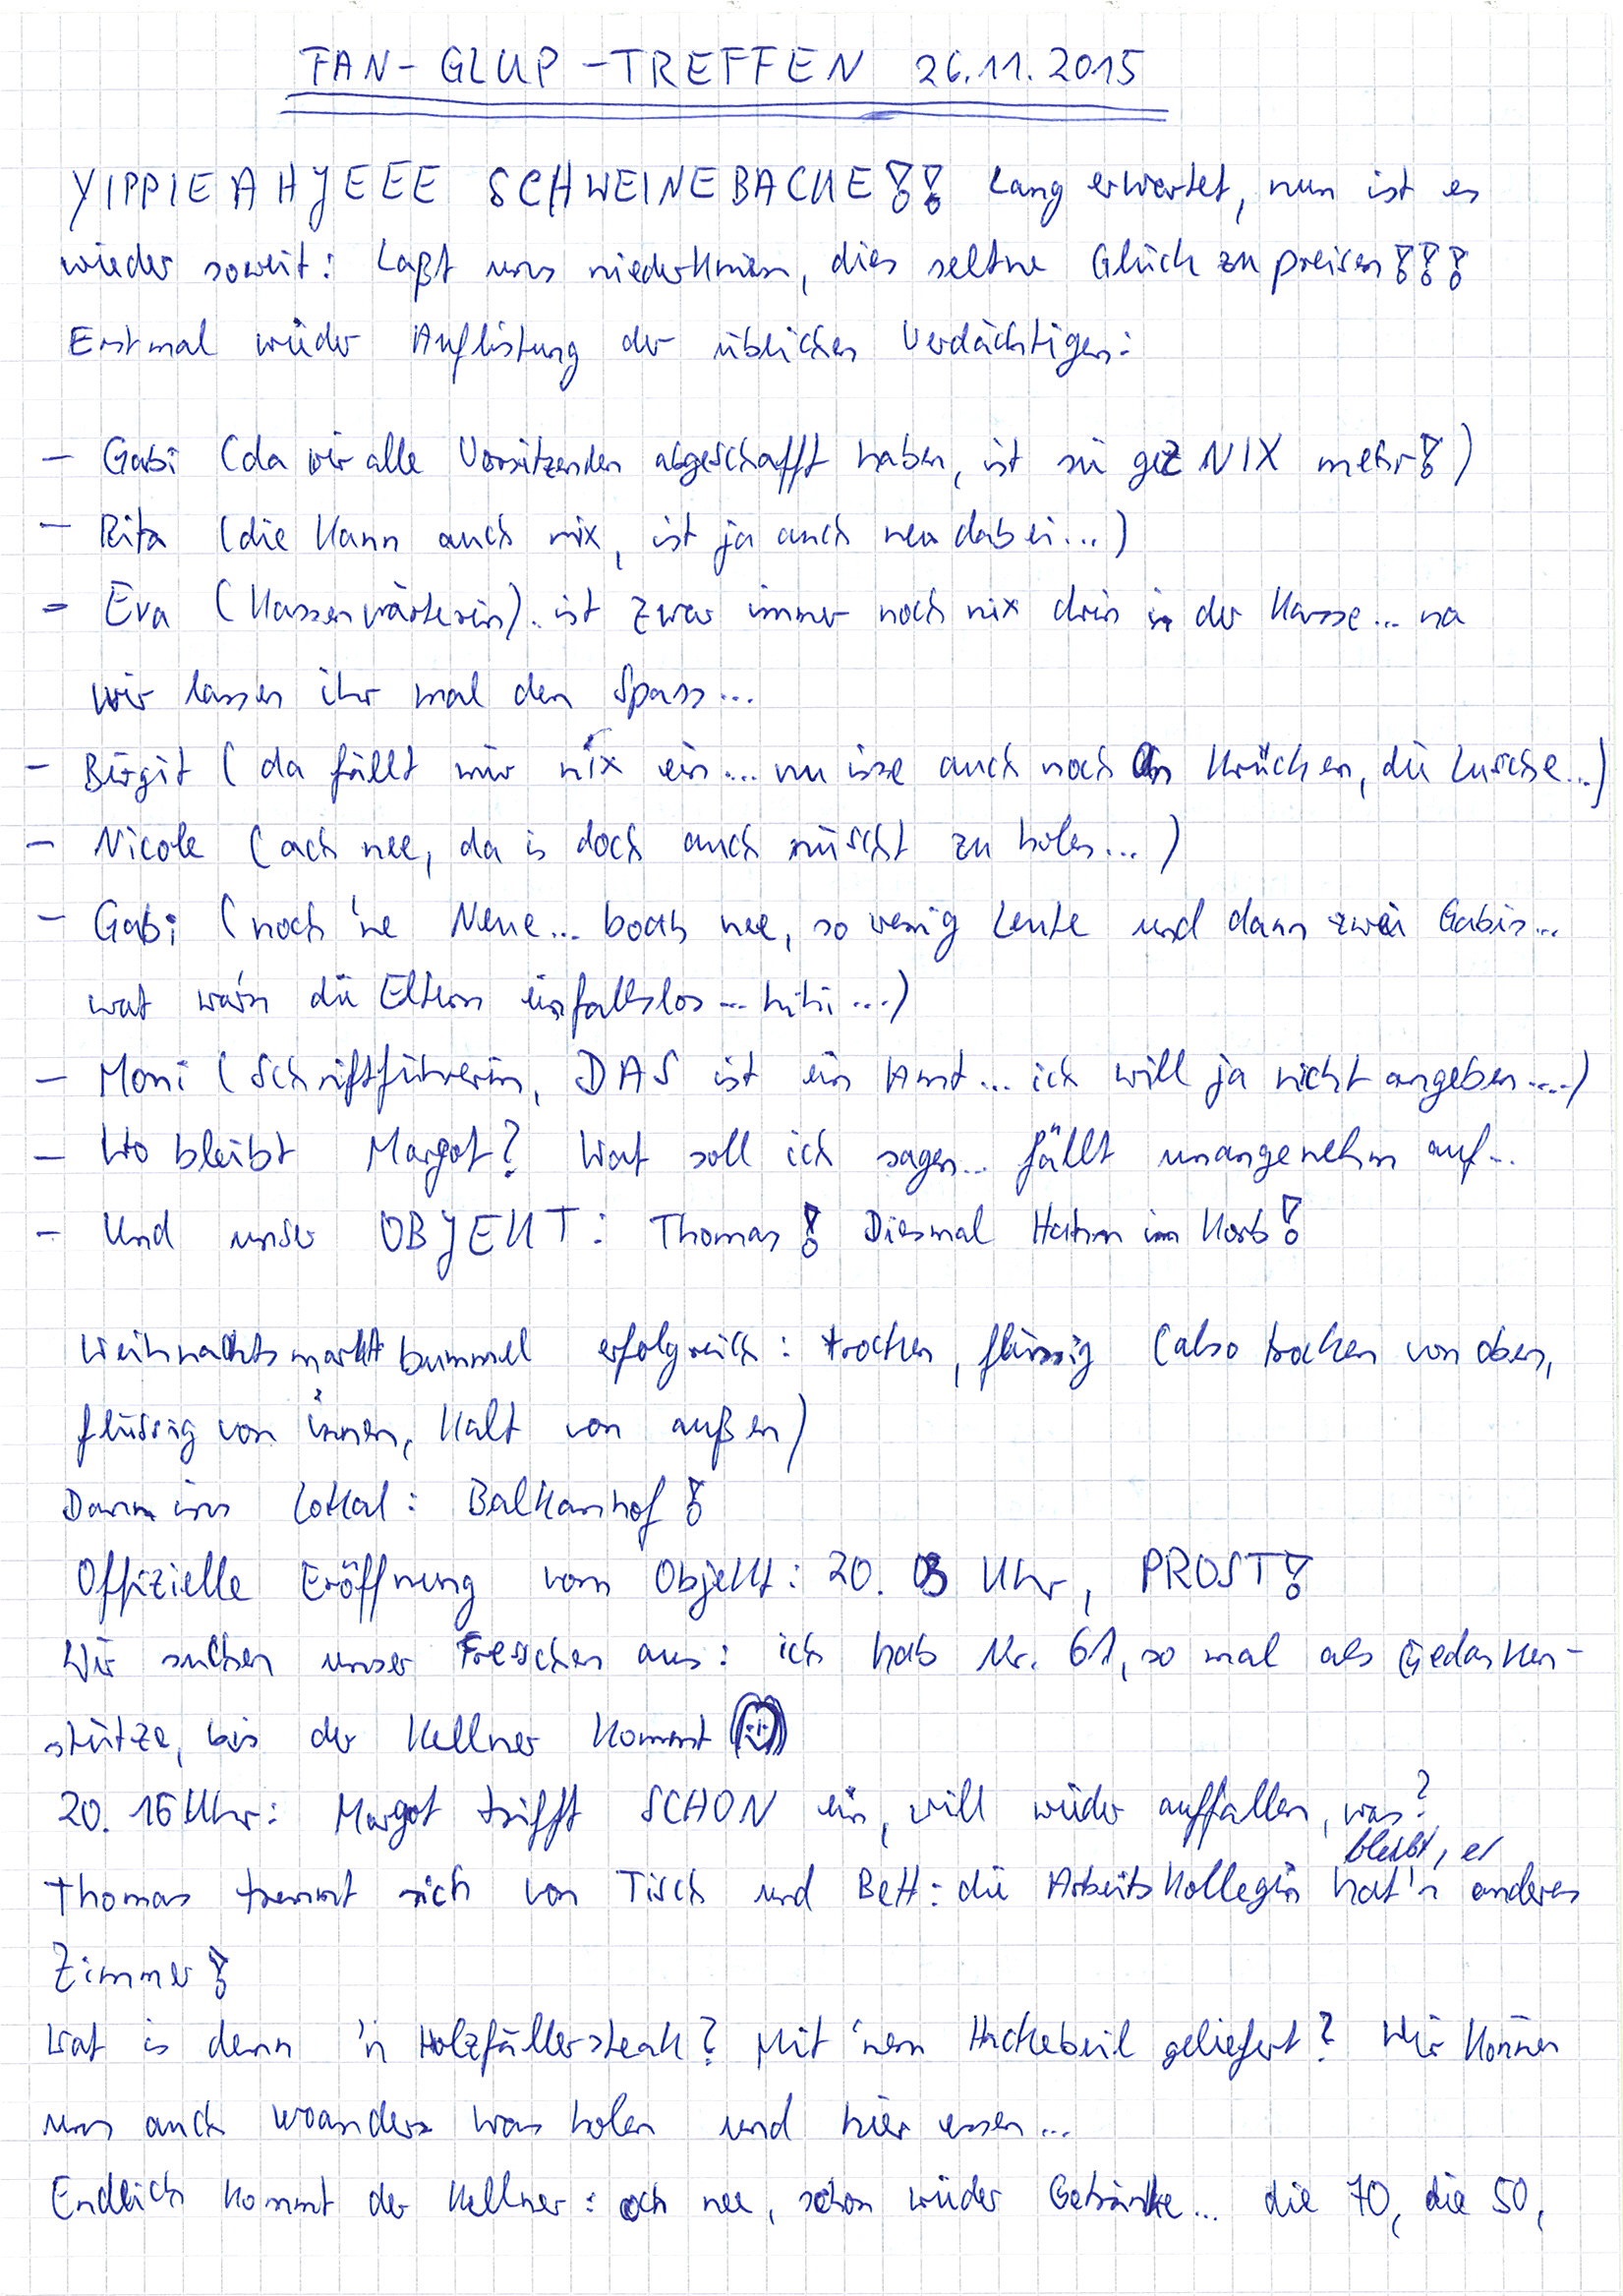 FAN-GLUP-TREFFEN 26.11.2015
YIPPIEAHJEEE SCHWEINEBACKE!! Lang erwartet, nun ist es
wieder soweit: Laßt uns niederknien, dies seltne Glück zu preisen!!!
Erstmal wieder Auflistung der üblichen Verdächtigen:
- Gabi (da wir alle Vorsitzenden abgeschafft haben, ist sie gez NIX mehr!)
- Rita (die kann auch nix, ist ja auch neu dabei...)
- Eva (Kassenwärterin). ist zwar immer noch nix drin in der Kasse... na
wir lassen ihr mal den Spass...
- Birgit (da fällt mir nix ein... nu isse auch noch an Krücken, die Lusche...)
- Nicole (ach nee, da is doch auch nüscht zu holen...)
- Gabi (noch 'ne Neue... boah nee, so wenig Leute und dann zwei Gabis...
wat war'n die Eltern einfallslos... hihi...)
- Moni (Schriftführerin, DAS ist ein Amt... ich will ja nicht angeben....)
- Wo bleibt Margot? Wat soll ich sagen... fällt unangenehm auf...
- Und unser OBJEKT: Thomas! Diesmal Hahn im Korb!
Weihnachtsmarktbummel erfolgreich: trocken, flüssig (also trocken von oben,
flüssig von innen, kalt von außen)
Dann ins Lokal: Balkanhof!
Offizielle Eröffnung vom Objekt: 20.03 Uhr, PROST!
Wir suchen unser Fresschen aus: ich hab Nr. 61, so mal als Gedanken-
stütze, bis der Kellner kommt
20.16 Uhr: Margot trifft SCHON ein, will wieder auffallen, was?
bleibt, er
Thomas trennt sich von Tisch und Bett: die Arbeitskollegin hat'n anderes
Zimmer!
Wat is denn 'n Holzfällersteak? Mit 'nem Hackebeil geliefert? Wir können
uns auch woanders was holen und hier essen...
Endlich kommt der Kellner: och nee, schon wieder Getränke... die 70, die 50,